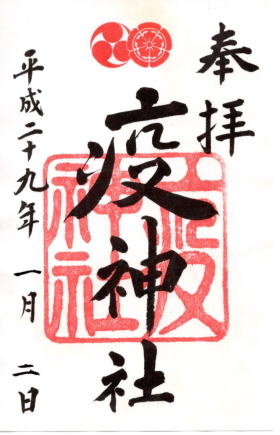 奉拝
疫神社
疫神社
平成二十九年 一月 二日